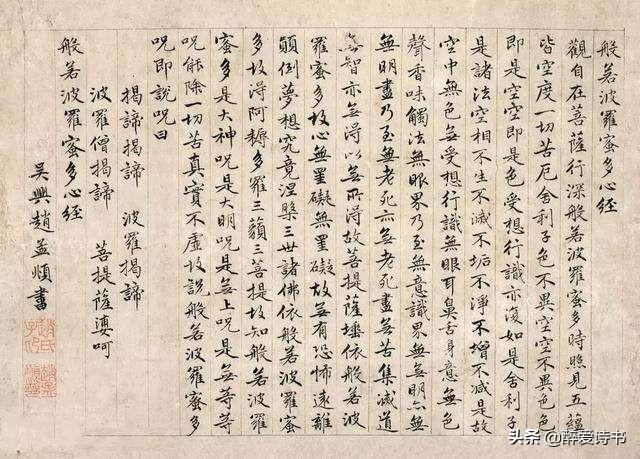 般若波羅蜜多心經
觀自在菩薩行深般若波羅蜜多時照見五蘊
皆空度一切苦厄舍利子色不異空空不異色色
即是空空即是色受想行識亦復如是舍利子
是諸法空相不生不滅不垢不淨不增不減是故
空中無色無受想行識無眼耳鼻舌身意無色
聲香味觸法無眼界乃至無意識界無無明亦無
無明盡乃至無老死亦無老死盡無苦集滅道
無智亦無得以無所得故菩提薩埵依般若波
羅蜜多故心無罣礙無罣礙故無有恐怖遠離
顛倒夢想究竟涅槃三世諸佛依般若波羅蜜
多故得阿耨多羅三藐三菩提故知般若波羅
蜜多是大神咒是大明咒是無上咒是無等等
咒能除一切苦真實不虛故說般若波羅蜜多
咒即說咒曰
揭諦揭諦 波羅揭諦
波羅僧揭諦 菩提薩婆訶
般若波羅蜜多心經
吳興趙孟頫書
头条 @醉爱诗书